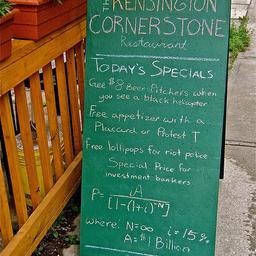 THE KENSINGTON
CORNERSTONE
Restaurant
TODAY'S SPECIALS
Get $8 Beer Pitchers when
you see a black helicopter
Free appetizer with a
Placcard or Protest T
Free lollipops for riot police
Special Price for
investment bankers
P = iA
[1-(1+i)^-N]
where: N=∞ i=15%
A=$1 Billion